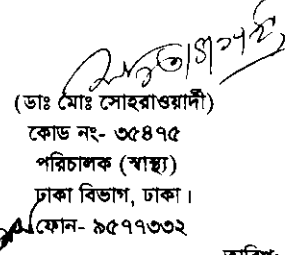 (ডাঃ মোঃ সোহরাওয়ার্দী)
কোড নং- ৩৫৪৭৫
পরিচালক (স্বাস্থ্য)
ঢাকা বিভাগ, ঢাকা।
ফোন- ৯৫৭৭৩৩২